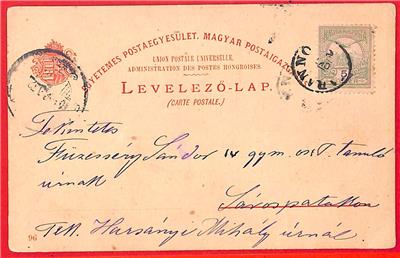 EGYETEMES POSTAEGYESÜLET. MAGYAR POSTAIGAZG
UNION POSTALE UNIVERSELLE.
ADMINISTRATION DES POSTES HONGROISES.
LEVELEZŐ-LAP.
(CARTE POSTALE.)
5
Tekintetes
Füzesséry Sándor IV gym. oszt. tanuló
úrnak
Sárospatakon
Tek. Harsányi Mihály úrnál.
96